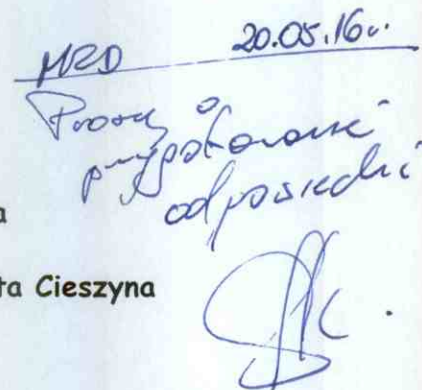 MRD 20.05.16r.
Proszę o
przygotowanie
odpowiedzi
a
ta Cieszyna